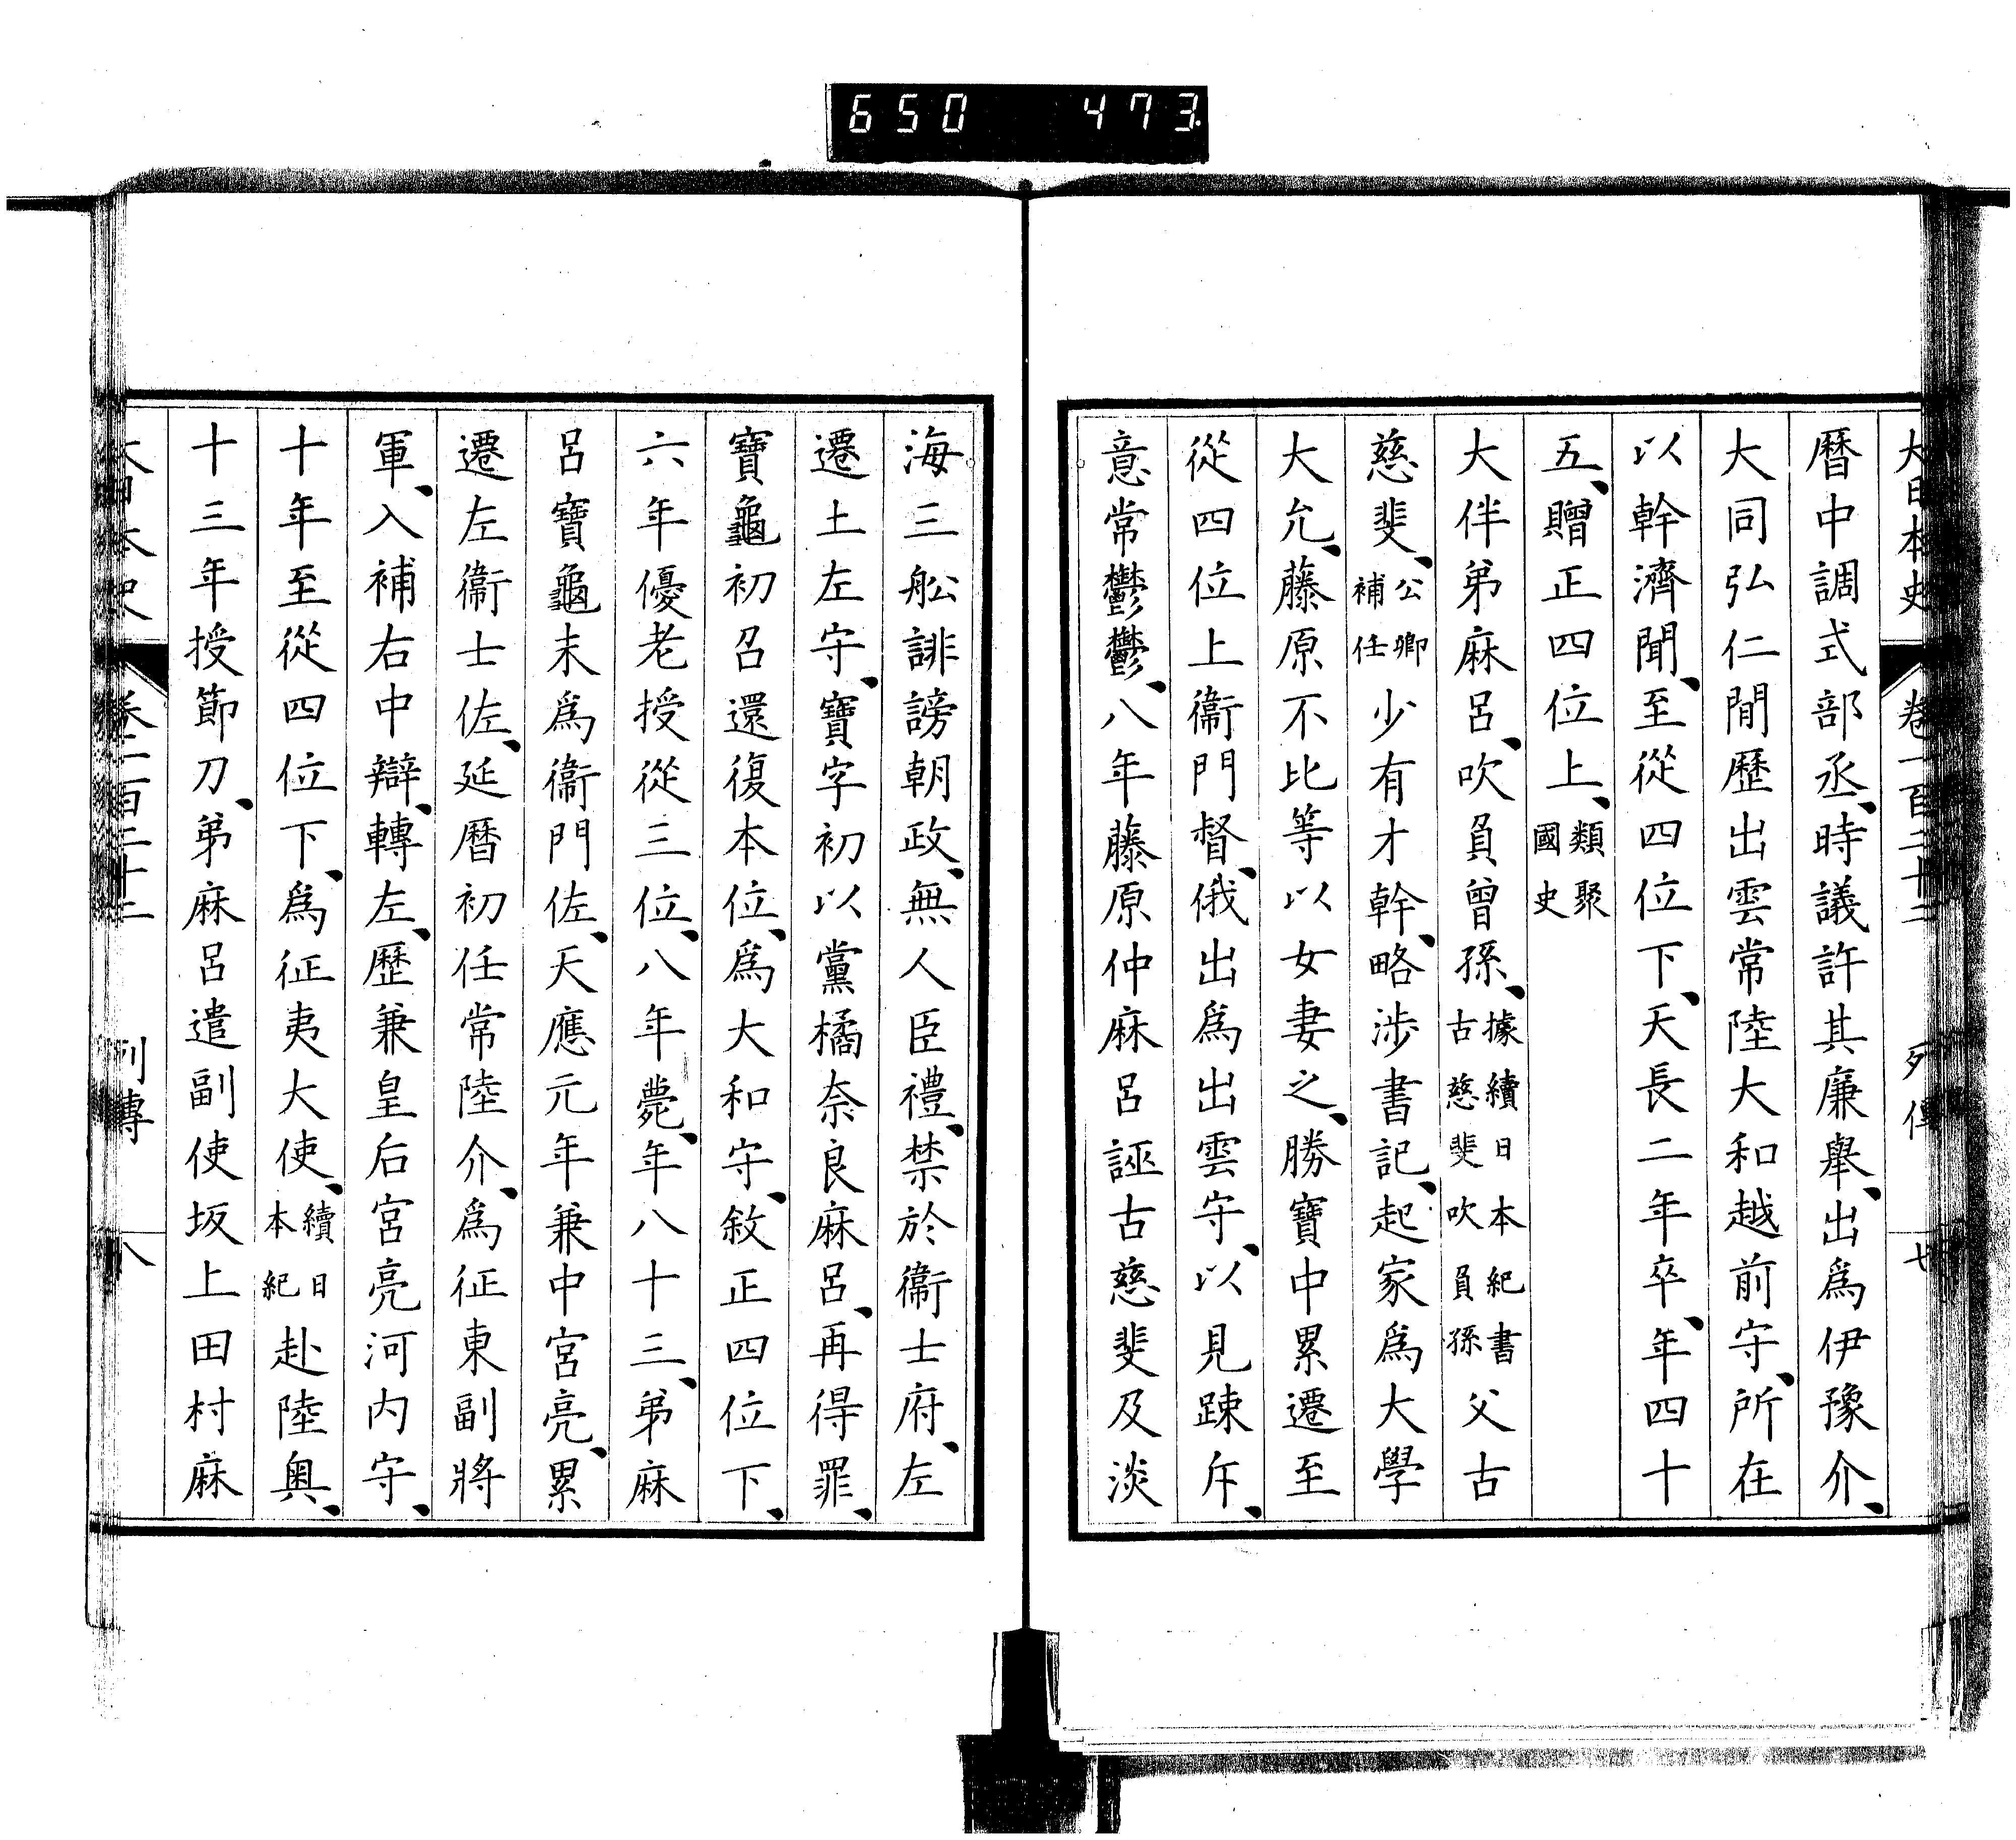 650 473
大日本史 卷一百二十二 列傳 七
曆中調式部丞、時議許其廉舉、出爲伊豫介、
大同弘仁閒歷出雲常陸大和越前守、所在
以幹濟聞、至從四位下、天長二年卒、年四十
五、贈正四位上、類聚國史
大伴弟麻呂、吹負曾孫、據續日本紀書古慈斐吹負孫父古
慈斐、公卿補任少有才幹、略涉書記、起家爲大學
大允、藤原不比等以女妻之、勝寶中累遷至
從四位上衞門督、俄出爲出雲守、以見疎斥、
意常鬱鬱、八年藤原仲麻呂誣古慈斐及淡
海三舩誹謗朝政、無人臣禮、禁於衞士府、左
遷土左守、寶字初以黨橘奈良麻呂、再得罪、
寶龜初召還復本位、爲大和守、敘正四位下、
六年優老授從三位、八年薨、年八十三、弟麻
呂寶龜末爲衞門佐、天應元年兼中宮亮、累
遷左衞士佐、延曆初任常陸介、爲征東副將
軍、入補右中辯、轉左、歷兼皇后宮亮河內守、
十年至從四位下、爲征夷大使、續日本紀赴陸奧、
十三年授節刀、弟麻呂遣副使坂上田村麻
大日本史 卷一百二十二 列傳 八